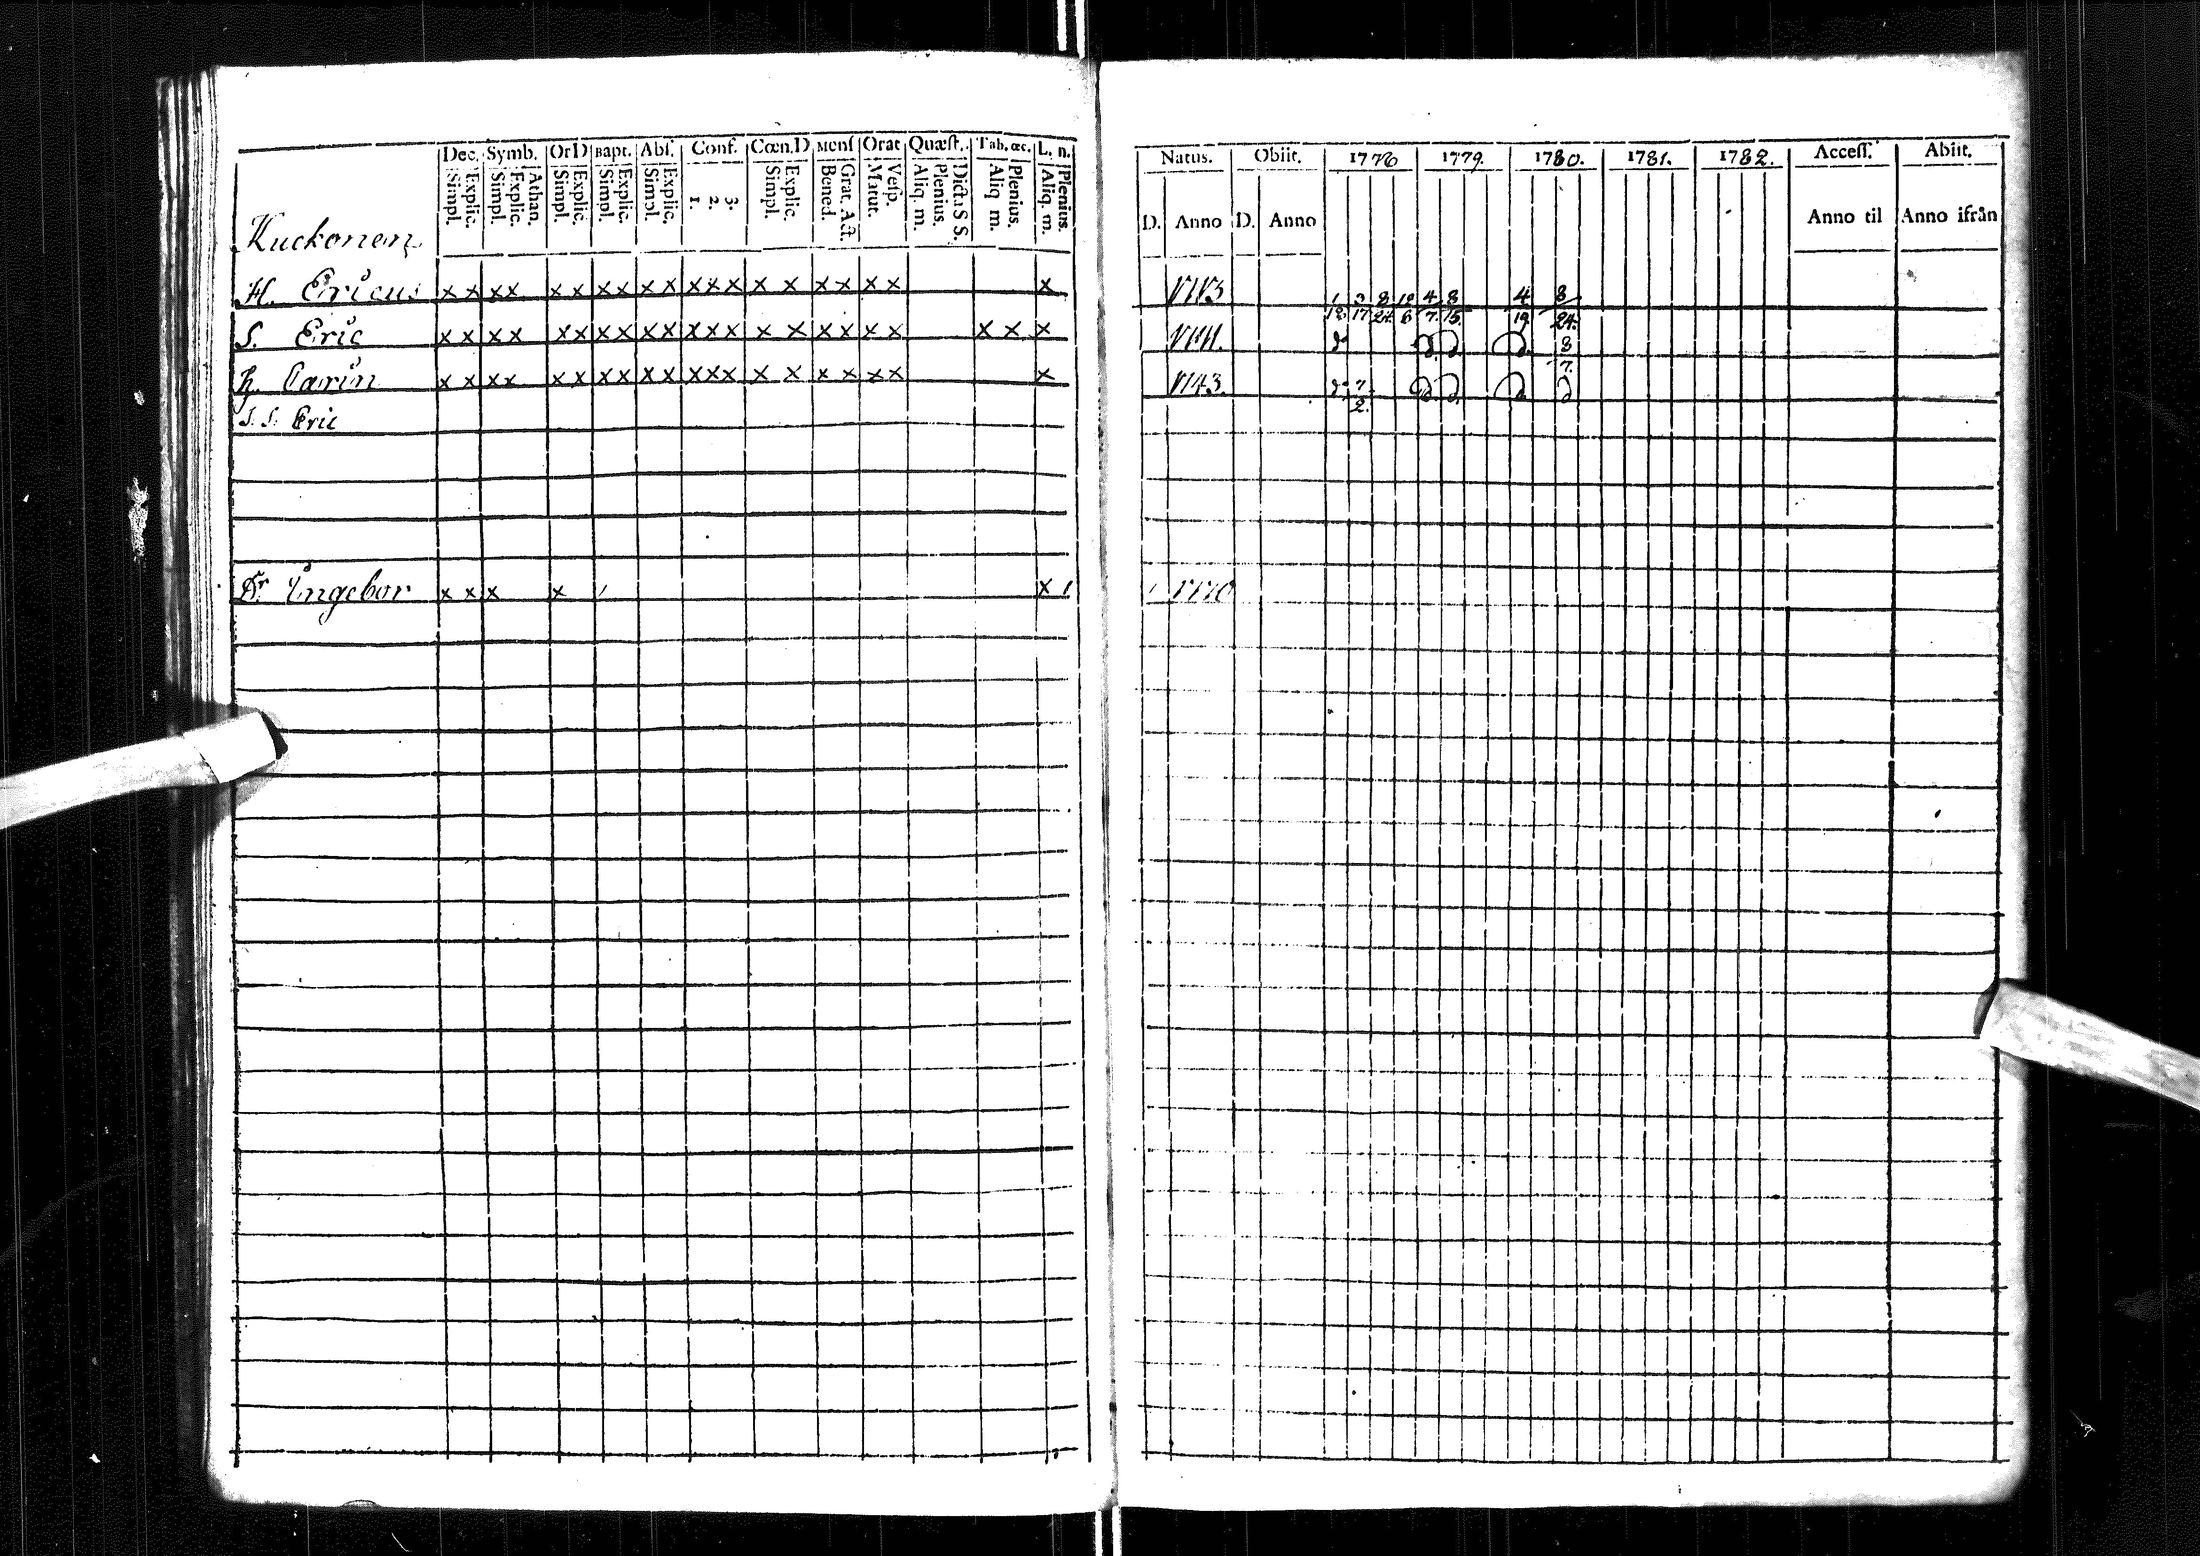 Dec. Symb. OrD Bapt. Abſ. Conf. Cœn.D Menſ Orat Quæſt. Tab. œc. L. n.
Simpl. Explic. Simpl. Explic. Athan. Simpl. Explic. Simpl. Explic. Simpl. Explic. 1. 2. 3. Simpl. Explic. Bened. Grat. Act. Matut. Veſp. Aliq. m. Plenius. Dicta S S. Aliq. m. Plenius. Aliq. m. Plenius.
Kuckonen
H. Ericus x x x x x x x x x x x x x x x x x x x x
S. Eric x x x x x x x x x x x x x x x x x x x x x x
h. Carin x x x x x x x x x x x x x x x x x x x x
S. S. Eric
Dr. Ingebor x x x x x
Natus. Obiit. 1776 1779. 1780. 1781. 1782. Acceſſ. Abiit.
D. Anno D. Anno Anno til Anno ifrån
1713 1 3 8 10 4 8 4 8
12 17 24 6 7. 15. 19 24.
8
7.
1743. 7
2.
1770